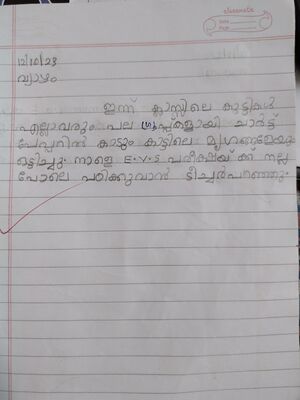 classmate
Date
Page
12/10/23
വ്യാഴം
ഇന്ന് ക്ലാസ്സിലെ കുട്ടികൾ
എല്ലാവരും പല ഗ്രൂപ്പുകളായി ചാർട്ട്
പേപ്പറിൽ കാടും കാട്ടിലെ മൃഗങ്ങളേയും
ഒട്ടിച്ചു. നാളെ E.V.S പരീക്ഷയ്ക്ക് നല്ല
പോലെ പഠിക്കുവാൻ ടീച്ചർപറഞ്ഞു.